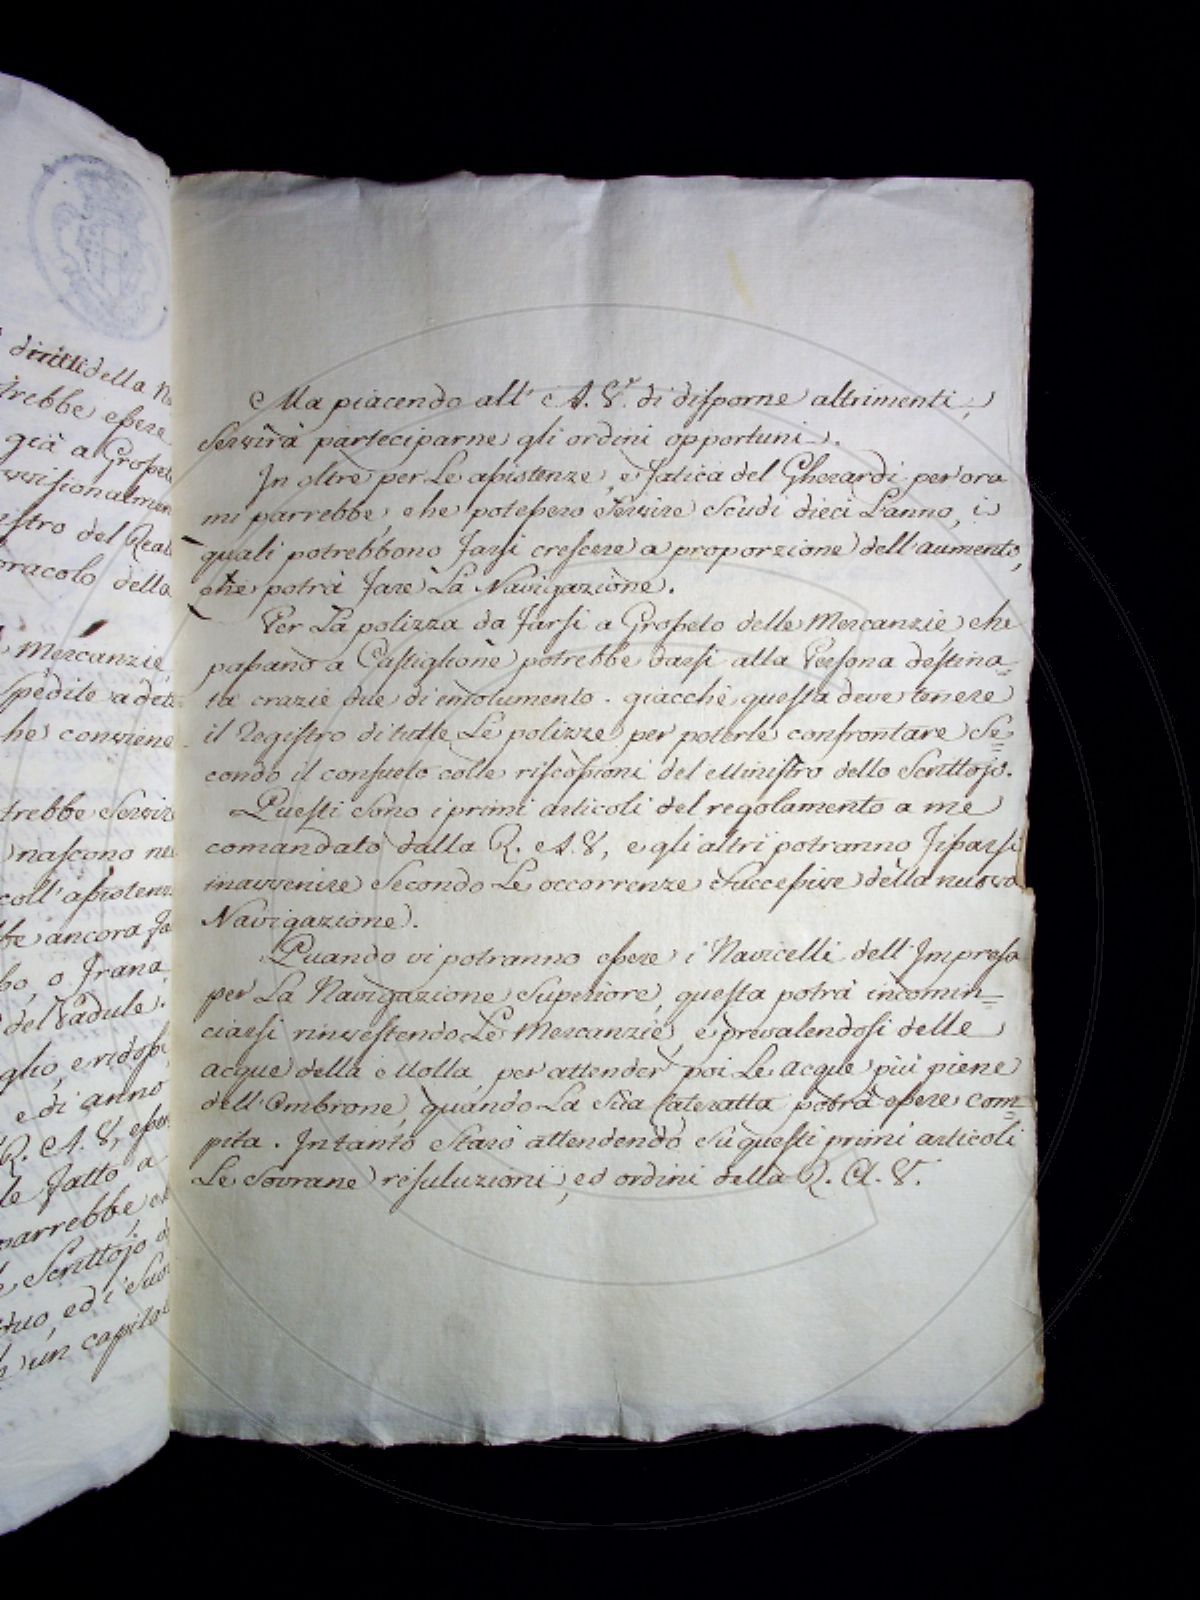 diritti della
trebbe essere
già a Grosseto
stro del Real
oracolo della
Mercanzie
spedite a
he conviene
trebbe servire
nascono ne
coll'assistenza
be ancora
bo, o frana
del Padule.
glio, e ridos
e di anno
R. A. V., esser
le fatto a
parrebbe
Scrittojo
ed i suoi
un capital
Ma piacendo all' A. V. di disporne altrimenti,
servirà parteciparne gli ordini opportuni.
In oltre per le assistenze, e fatica del Gherardi per ora
mi parrebbe, che potessero servire Scudi dieci l'anno, i
quali potrebbono farsi crescere a proporzione dell'aumento,
che potrà fare la Navigazione.
Per la polizza da farsi a Grosseto delle Mercanzie, che
passano a Castiglione potrebbe darsi alla Persona destina=
ta crazie due di emolumento. giacchè questa deve tenere
il Registro di tutte le polizze per poterle confrontare Se=
condo il consueto colle riscossioni del Ministro dello Scrittojo.
Questi sono i primi articoli del regolamento a me
comandato dalla R. A. V., e gli altri potranno fissarsi
inavvenire secondo le occorrenze successive della nuova
Navigazione.
Quando vi potranno essere i Navicelli dell'Impresa
per la Navigazione Superiore, questa potrà incomin=
ciarsi rinvestendo le Mercanzie, e prevalendosi delle
acque della Molla, per attender poi le acque più piene
dell'Ombrone, quando la sua Cateratta potrà essere com=
pita. Intanto starò attendendo su questi primi articoli
le Sovrane risuluzioni, ed ordini della R. A. V.